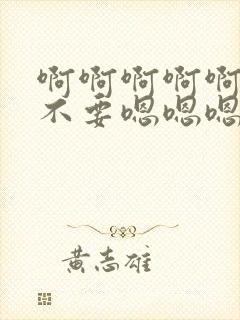 啊啊啊啊啊
不要嗯嗯嗯
黄志雄